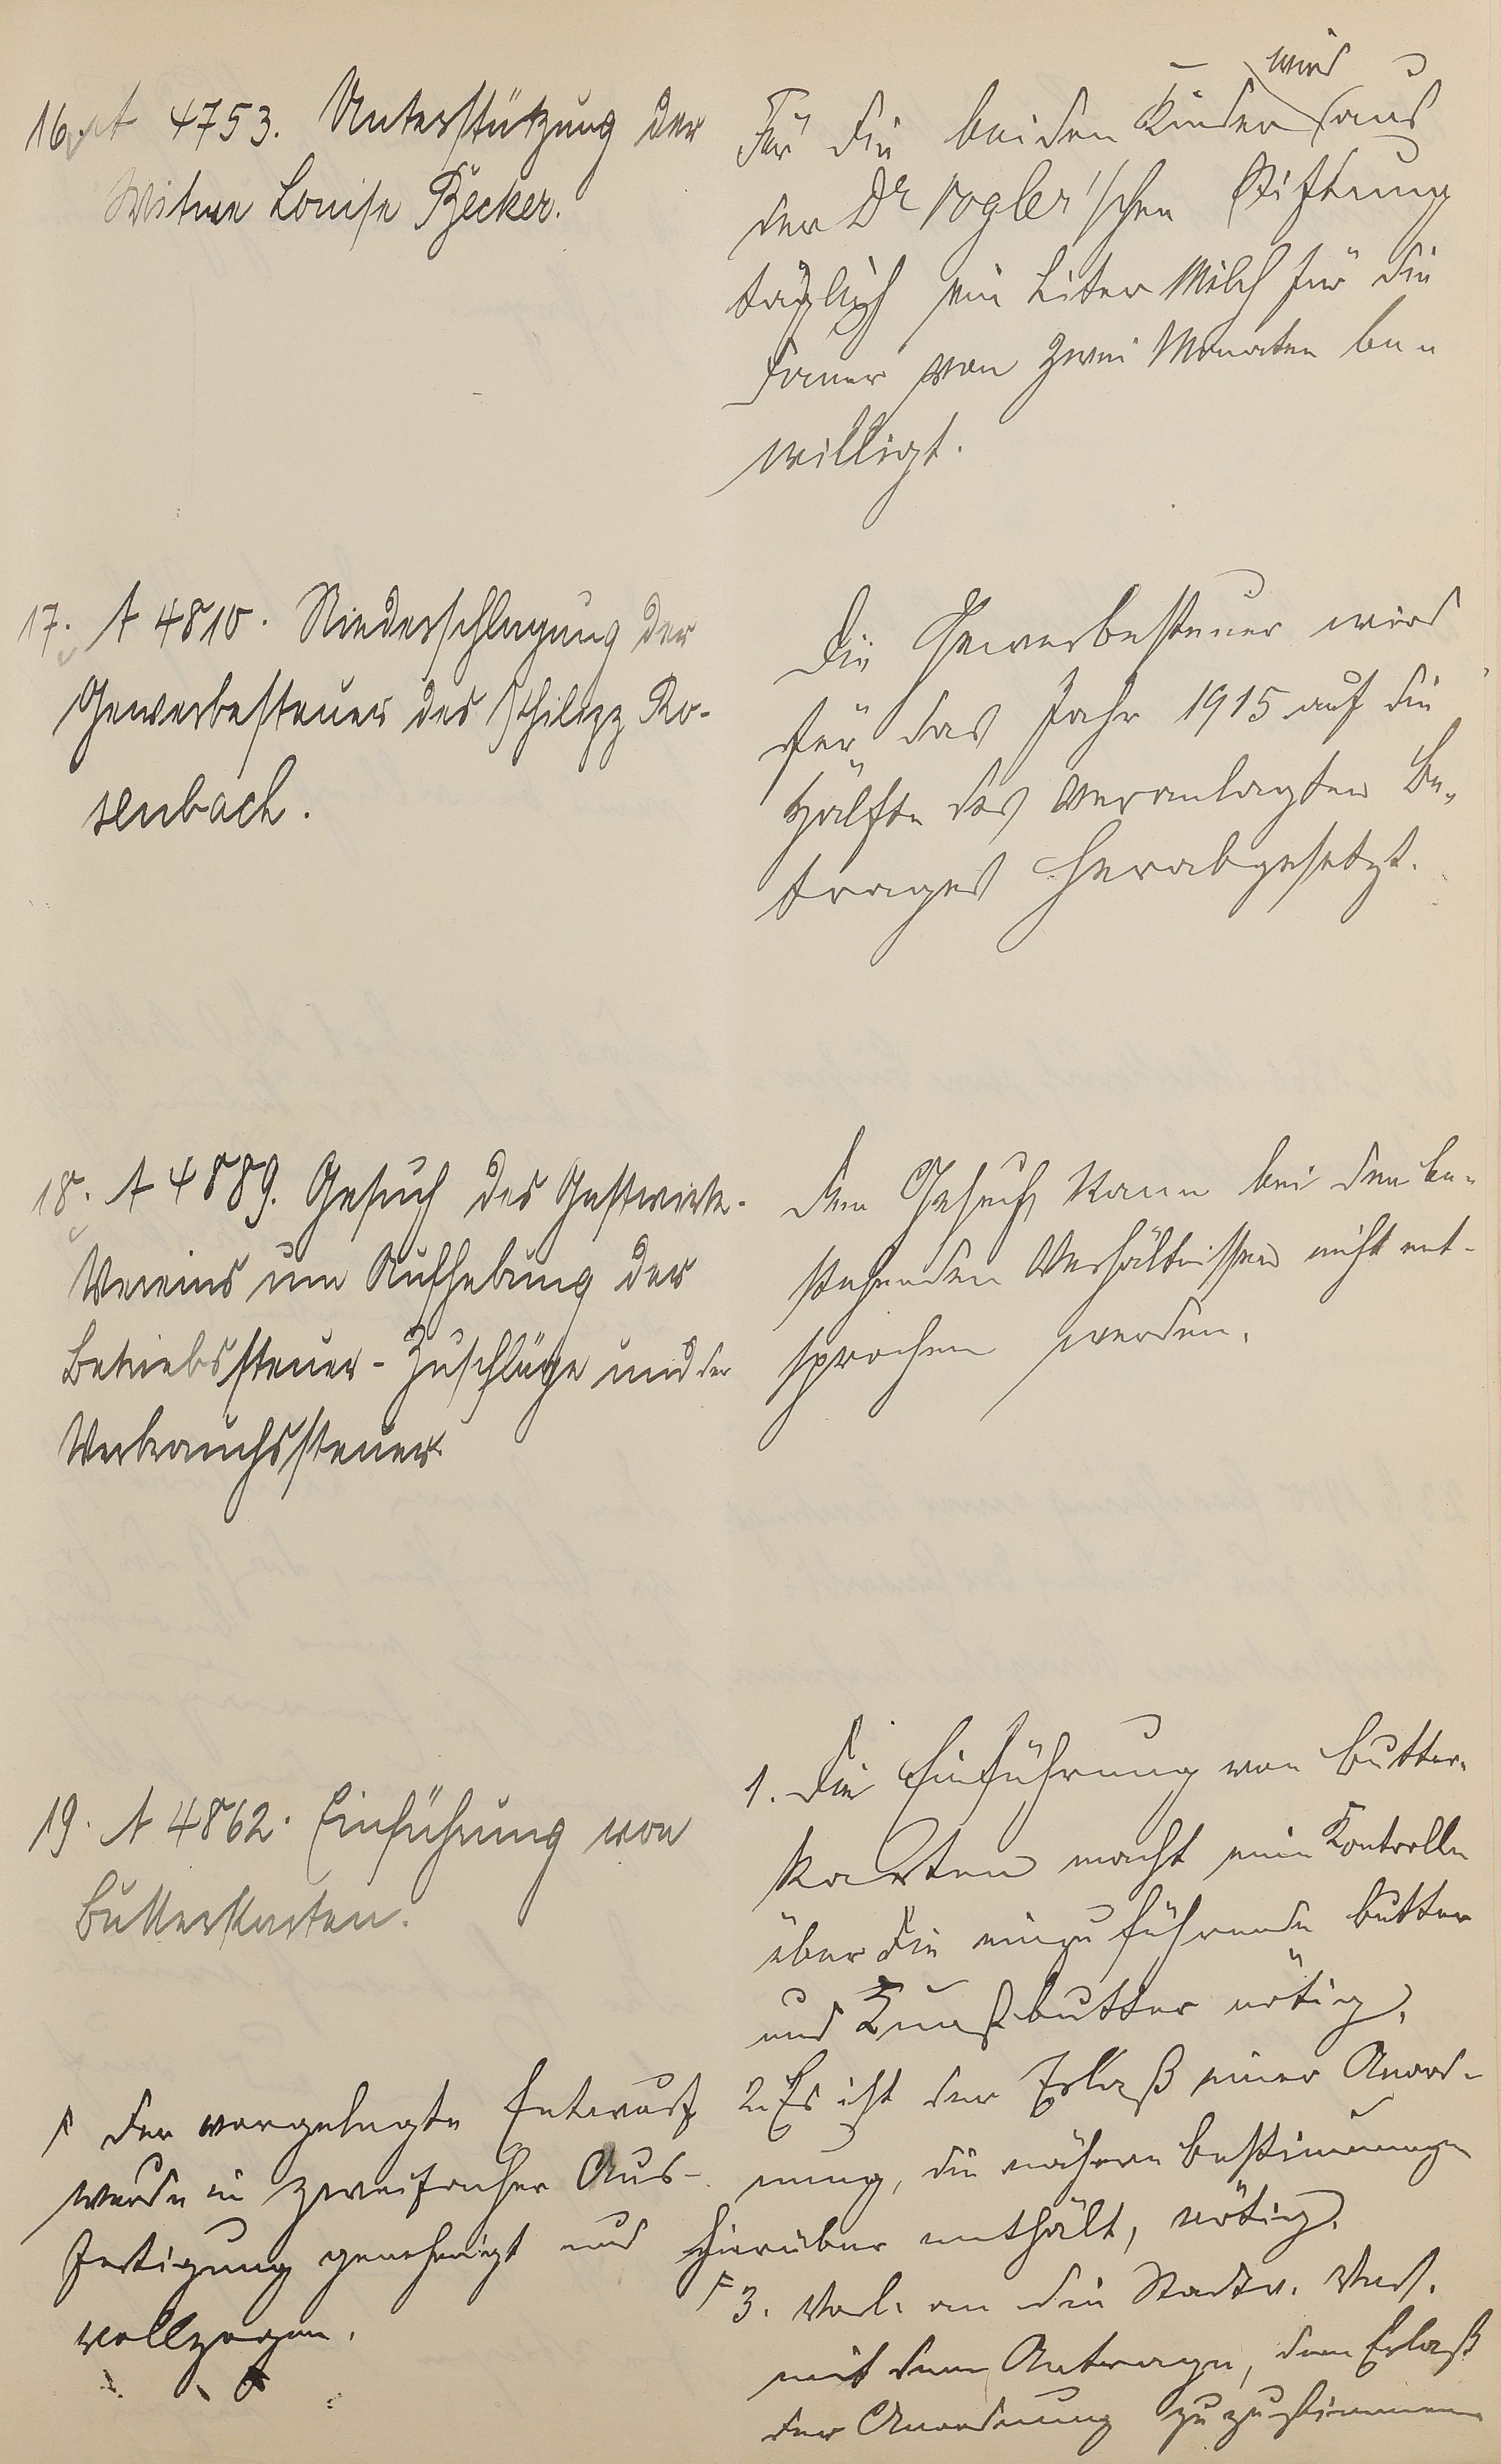 16. A 4753. Unterstützung der
Witwe Louise Becker.
Für die beiden Kinder wird aus
der Dr Vogler'schen Stiftung
täglich ein Liter Milch für die
Dauer von zwei Monaten be-
willigt.
17. A 4810. Niederschlagung der
Gewerbesteuer des Philipp Ro-
senbach.
Die Gewerbesteuer wird
für das Jahr 1915 auf die
Hälfte des veranlagten Be-
trages herabgesetzt.
18. A 4889. Gesuch des Gastwirte-
Vereins um Aufhebung der
Betriebssteuer-Zuschläge und der
Verbrauchssteuer
Dem Gesuch kann bei den be-
stehenden Verhältnissen nicht ent-
sprochen werden.
19. A 4862. Einführung von
Butterkarten.
1. Die Einführung von Butter-
karten macht eine Kontrolle
über die einzuführende Butter
und Kunstbutter nötig.
2. Es ist der Erlaß einer Anord-
nung, die nähere Bestimmungen
hierüber enthält, nötig.
F Der vorgelegte Entwurf
wurde in zweifacher Aus-
fertigung genehmigt und
vollzogen.
F 3. Vorl. an die Stadtv. Vers.
mit dem Antrage, dem Erlaß
der Anordnung zuzustimmen